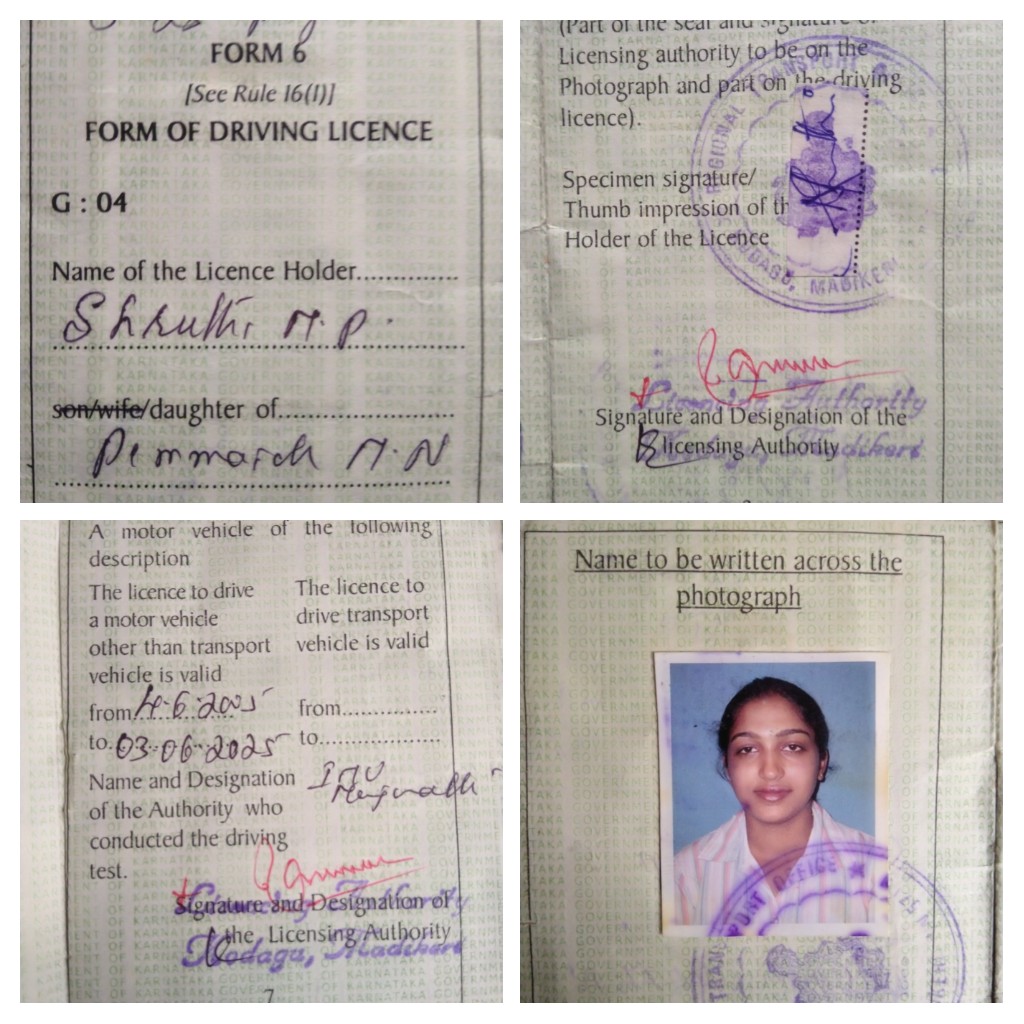 FORM 6
[See Rule 16(1)]
FORM OF DRIVING LICENCE
G : 04
Name of the Licence Holder..............
Shruthi M.P.
son/wife/daughter of........................
M.N
(Part of the seal and signature of
Licensing authority to be on the
Photograph and part on the driving
licence).
Specimen signature/
Thumb impression of th
Holder of the Licence
REGIONAL TRANSPORT
KODAGU, MADIKERI
Licensing Authority
Signature and Designation of the
licensing Authority
Kodagu, Madikeri
A motor vehicle of the following
description
The licence to drive
a motor vehicle
other than transport
vehicle is valid
from 4.6.2005
to 03-06-2025
The licence to
drive transport
vehicle is valid
from................
to....................
Name and Designation
of the Authority who
conducted the driving
test.
IMV
Licensing Authority
Signature and Designation of
the Licensing Authority
Kodagu, Madikeri
7
Name to be written across the
photograph
TRANSPORT OFFICE